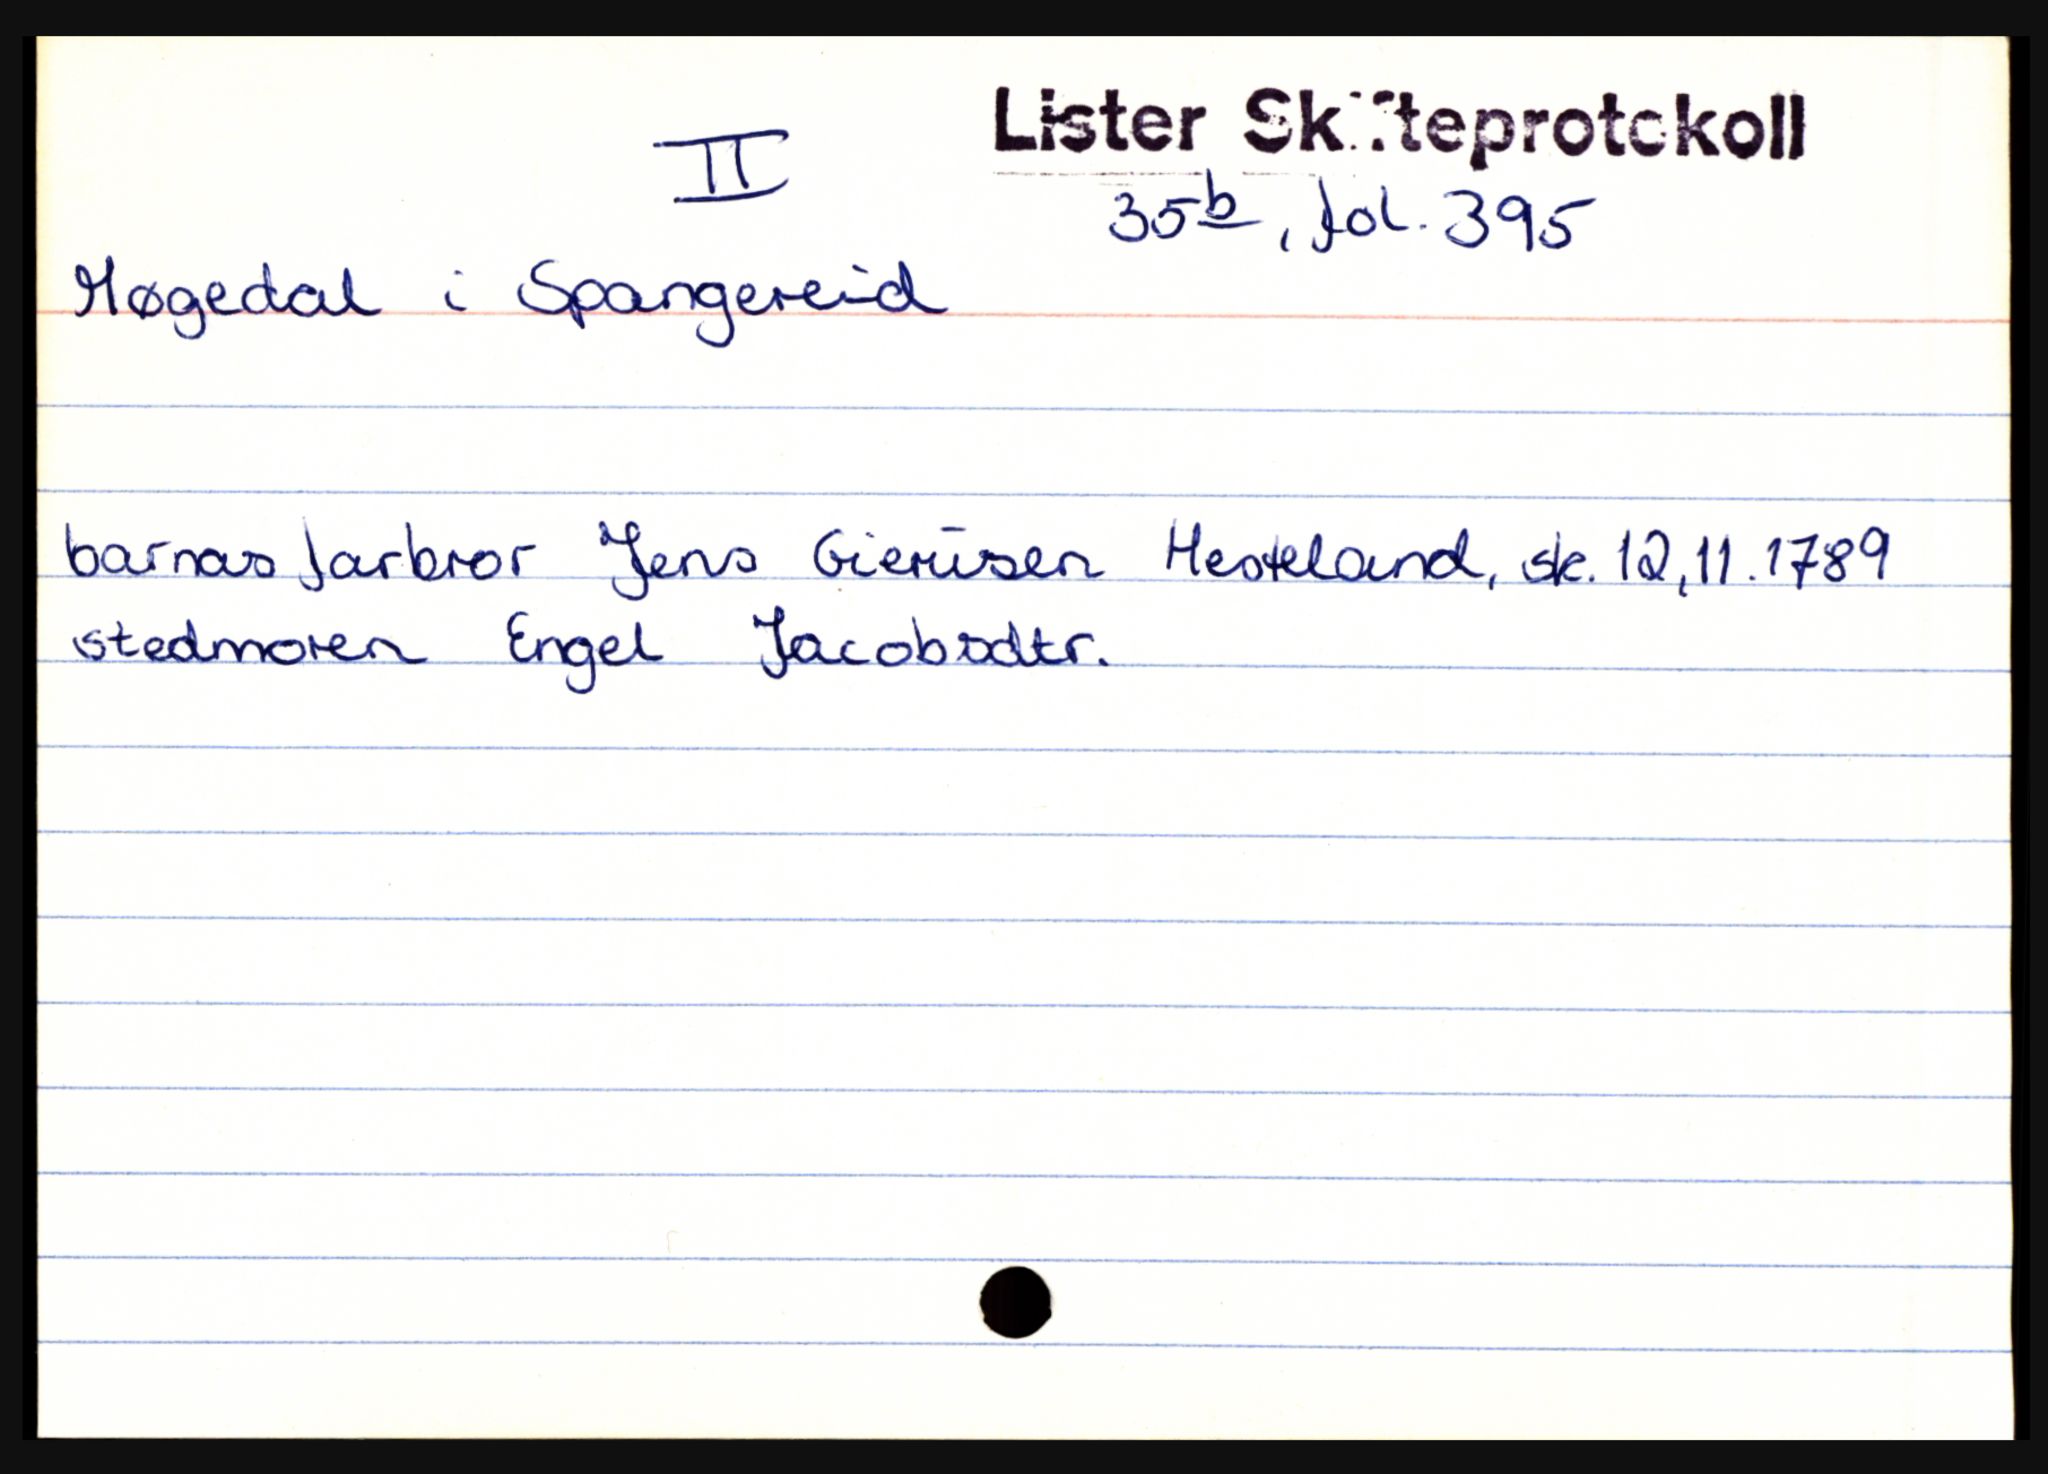 II
Lister Skifteprotokoll
35b, fol. 395
Høgedal i Spangereid
barnas farbror Jens Gierūsen Hesteland, sk. 12,11.1789
stedmoren Engel Jacobsdtr.